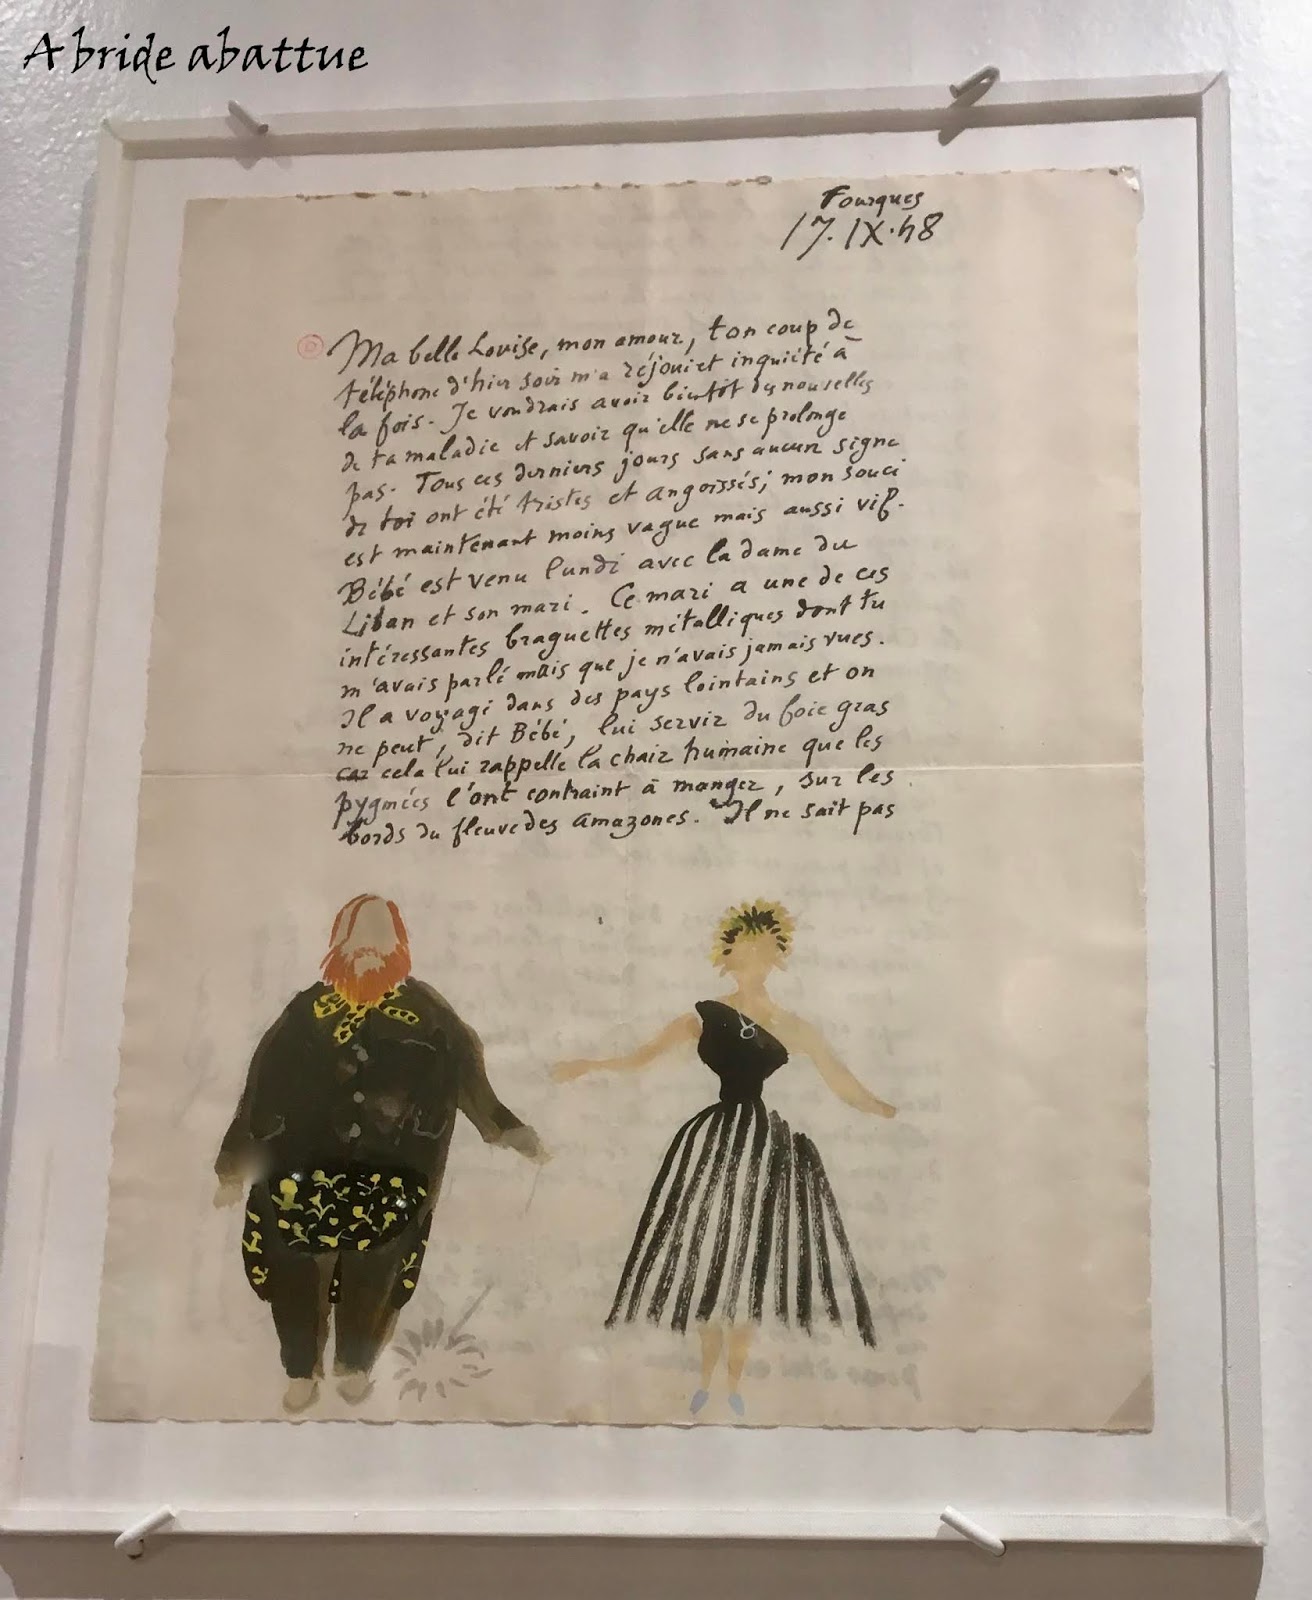 A bride abattue
Fourques
17.IX.48
Ma belle Louise, mon amour, ton coup de
téléphone d'hier soir m'a réjoui et inquiété à
la fois. Je voudrais avoir bientôt des nouvelles
de ta maladie et savoir qu'elle ne se prolonge
pas. Tous ces derniers jours sans aucun signe
de toi ont été tristes et angoissés; mon souci
est maintenant moins vague mais aussi vif.
Bébé est venu lundi avec la dame du
Liban et son mari. Ce mari a une de ces
intéressantes braguettes métalliques dont tu
m'avais parlé mais que je n'avais jamais vues.
Il a voyagé dans des pays lointains et on
ne peut, dit Bébé, lui servir du foie gras
car cela lui rappelle la chair humaine que les
pygmées l'ont contraint à manger, sur les
bords du fleuve des amazones. Il ne sait pas